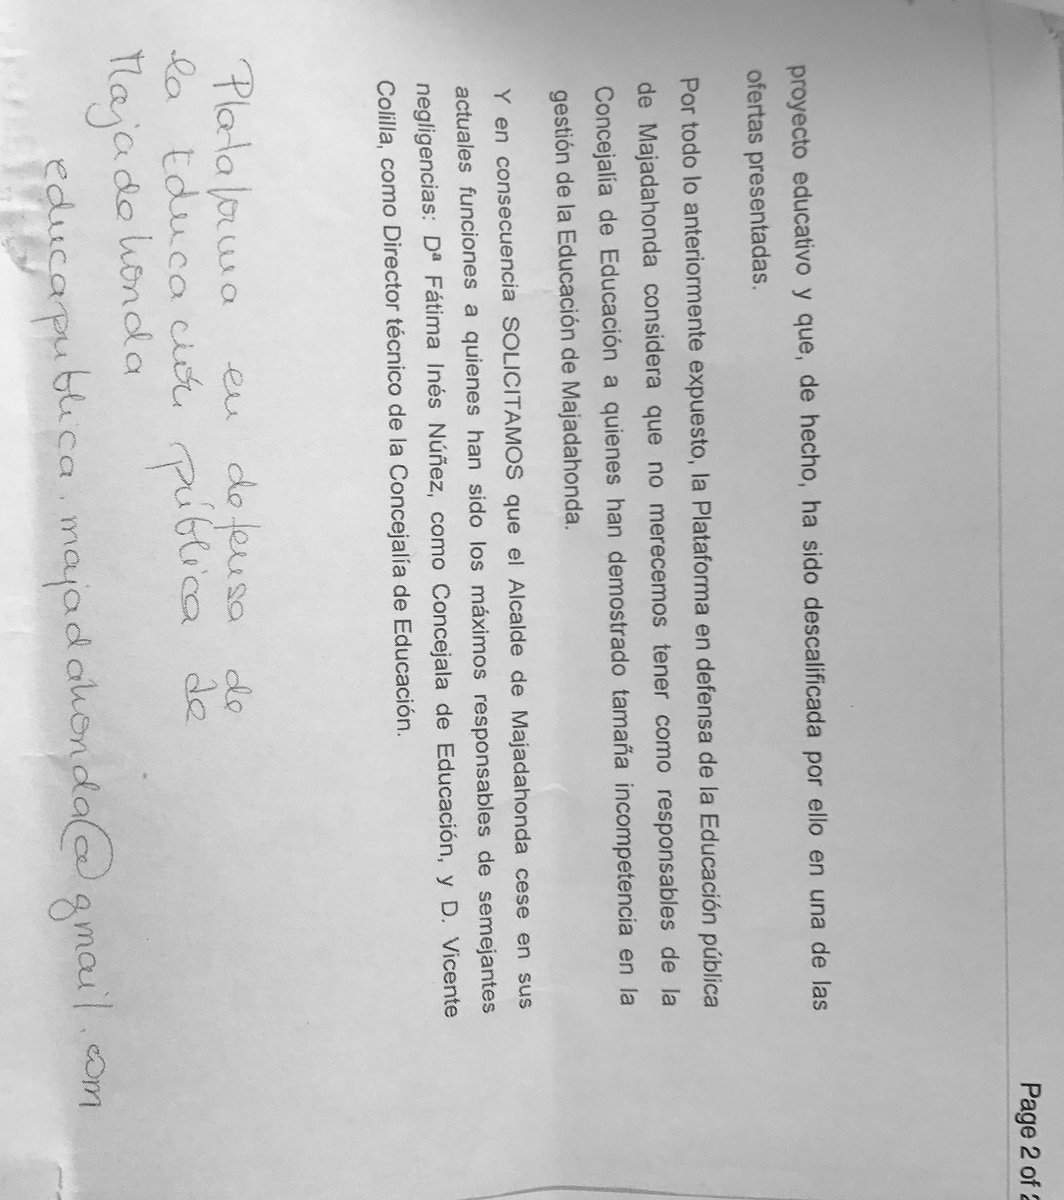 Page 2 of 2
proyecto educativo y que, de hecho, ha sido descalificada por ello en una de las
ofertas presentadas.
Por todo lo anteriormente expuesto, la Plataforma en defensa de la Educación pública
de Majadahonda considera que no merecemos tener como responsables de la
Concejalía de Educación a quienes han demostrado tamaña incompetencia en la
gestión de la Educación de Majadahonda.
Y en consecuencia SOLICITAMOS que el Alcalde de Majadahonda cese en sus
actuales funciones a quienes han sido los máximos responsables de semejantes
negligencias: Dª Fátima Inés Núñez, como Concejala de Educación, y D. Vicente
Colilla, como Director técnico de la Concejalía de Educación.
Plataforma en defensa de
la Educación pública de
Majadahonda
educarpublica.majadahonda@gmail.com